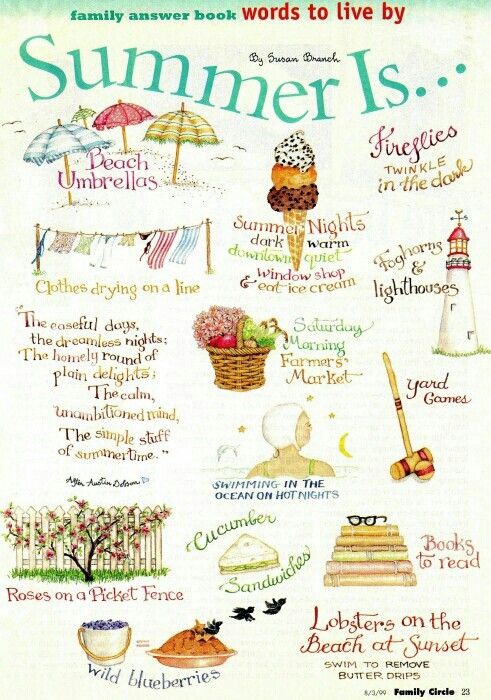 family answer book words to live by
Summer Is...
By Susan Branch
Beach
Umbrellas
Fireflies
TWINKLE
in the dark
Summer Nights
dark warm
downtown quiet
window shop
& eat ice cream
Clothes drying on a line
Foghorns
&
lighthouses
"The easeful days,
the dreamless nights;
The homely round of
plain delights;
The calm,
unambitioned mind,
The simple stuff
of summertime."
After Austin Dobson
Saturday
Morning
Farmers'
Market
Yard
Games
SWIMMING IN THE
OCEAN ON HOT NIGHTS
Roses on a Picket Fence
Cucumber
Sandwiches
Books
to read
wild blueberries
Lobsters on the
Beach at Sunset
SWIM TO REMOVE
BUTTER DRIPS
8/3/99 Family Circle 23